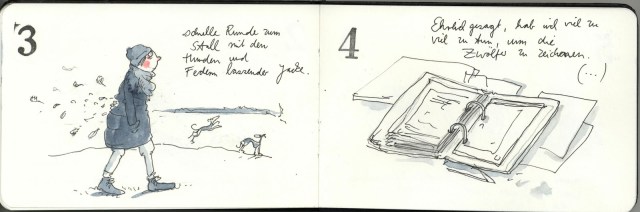 3
schnelle Runde zum
Stall mit den
Hunden und
Federn lassender Jacke.
4
Ehrlich gesagt, hab ich viel zu
viel zu tun, um die
Zwölfer zu zeichnen.
(...)